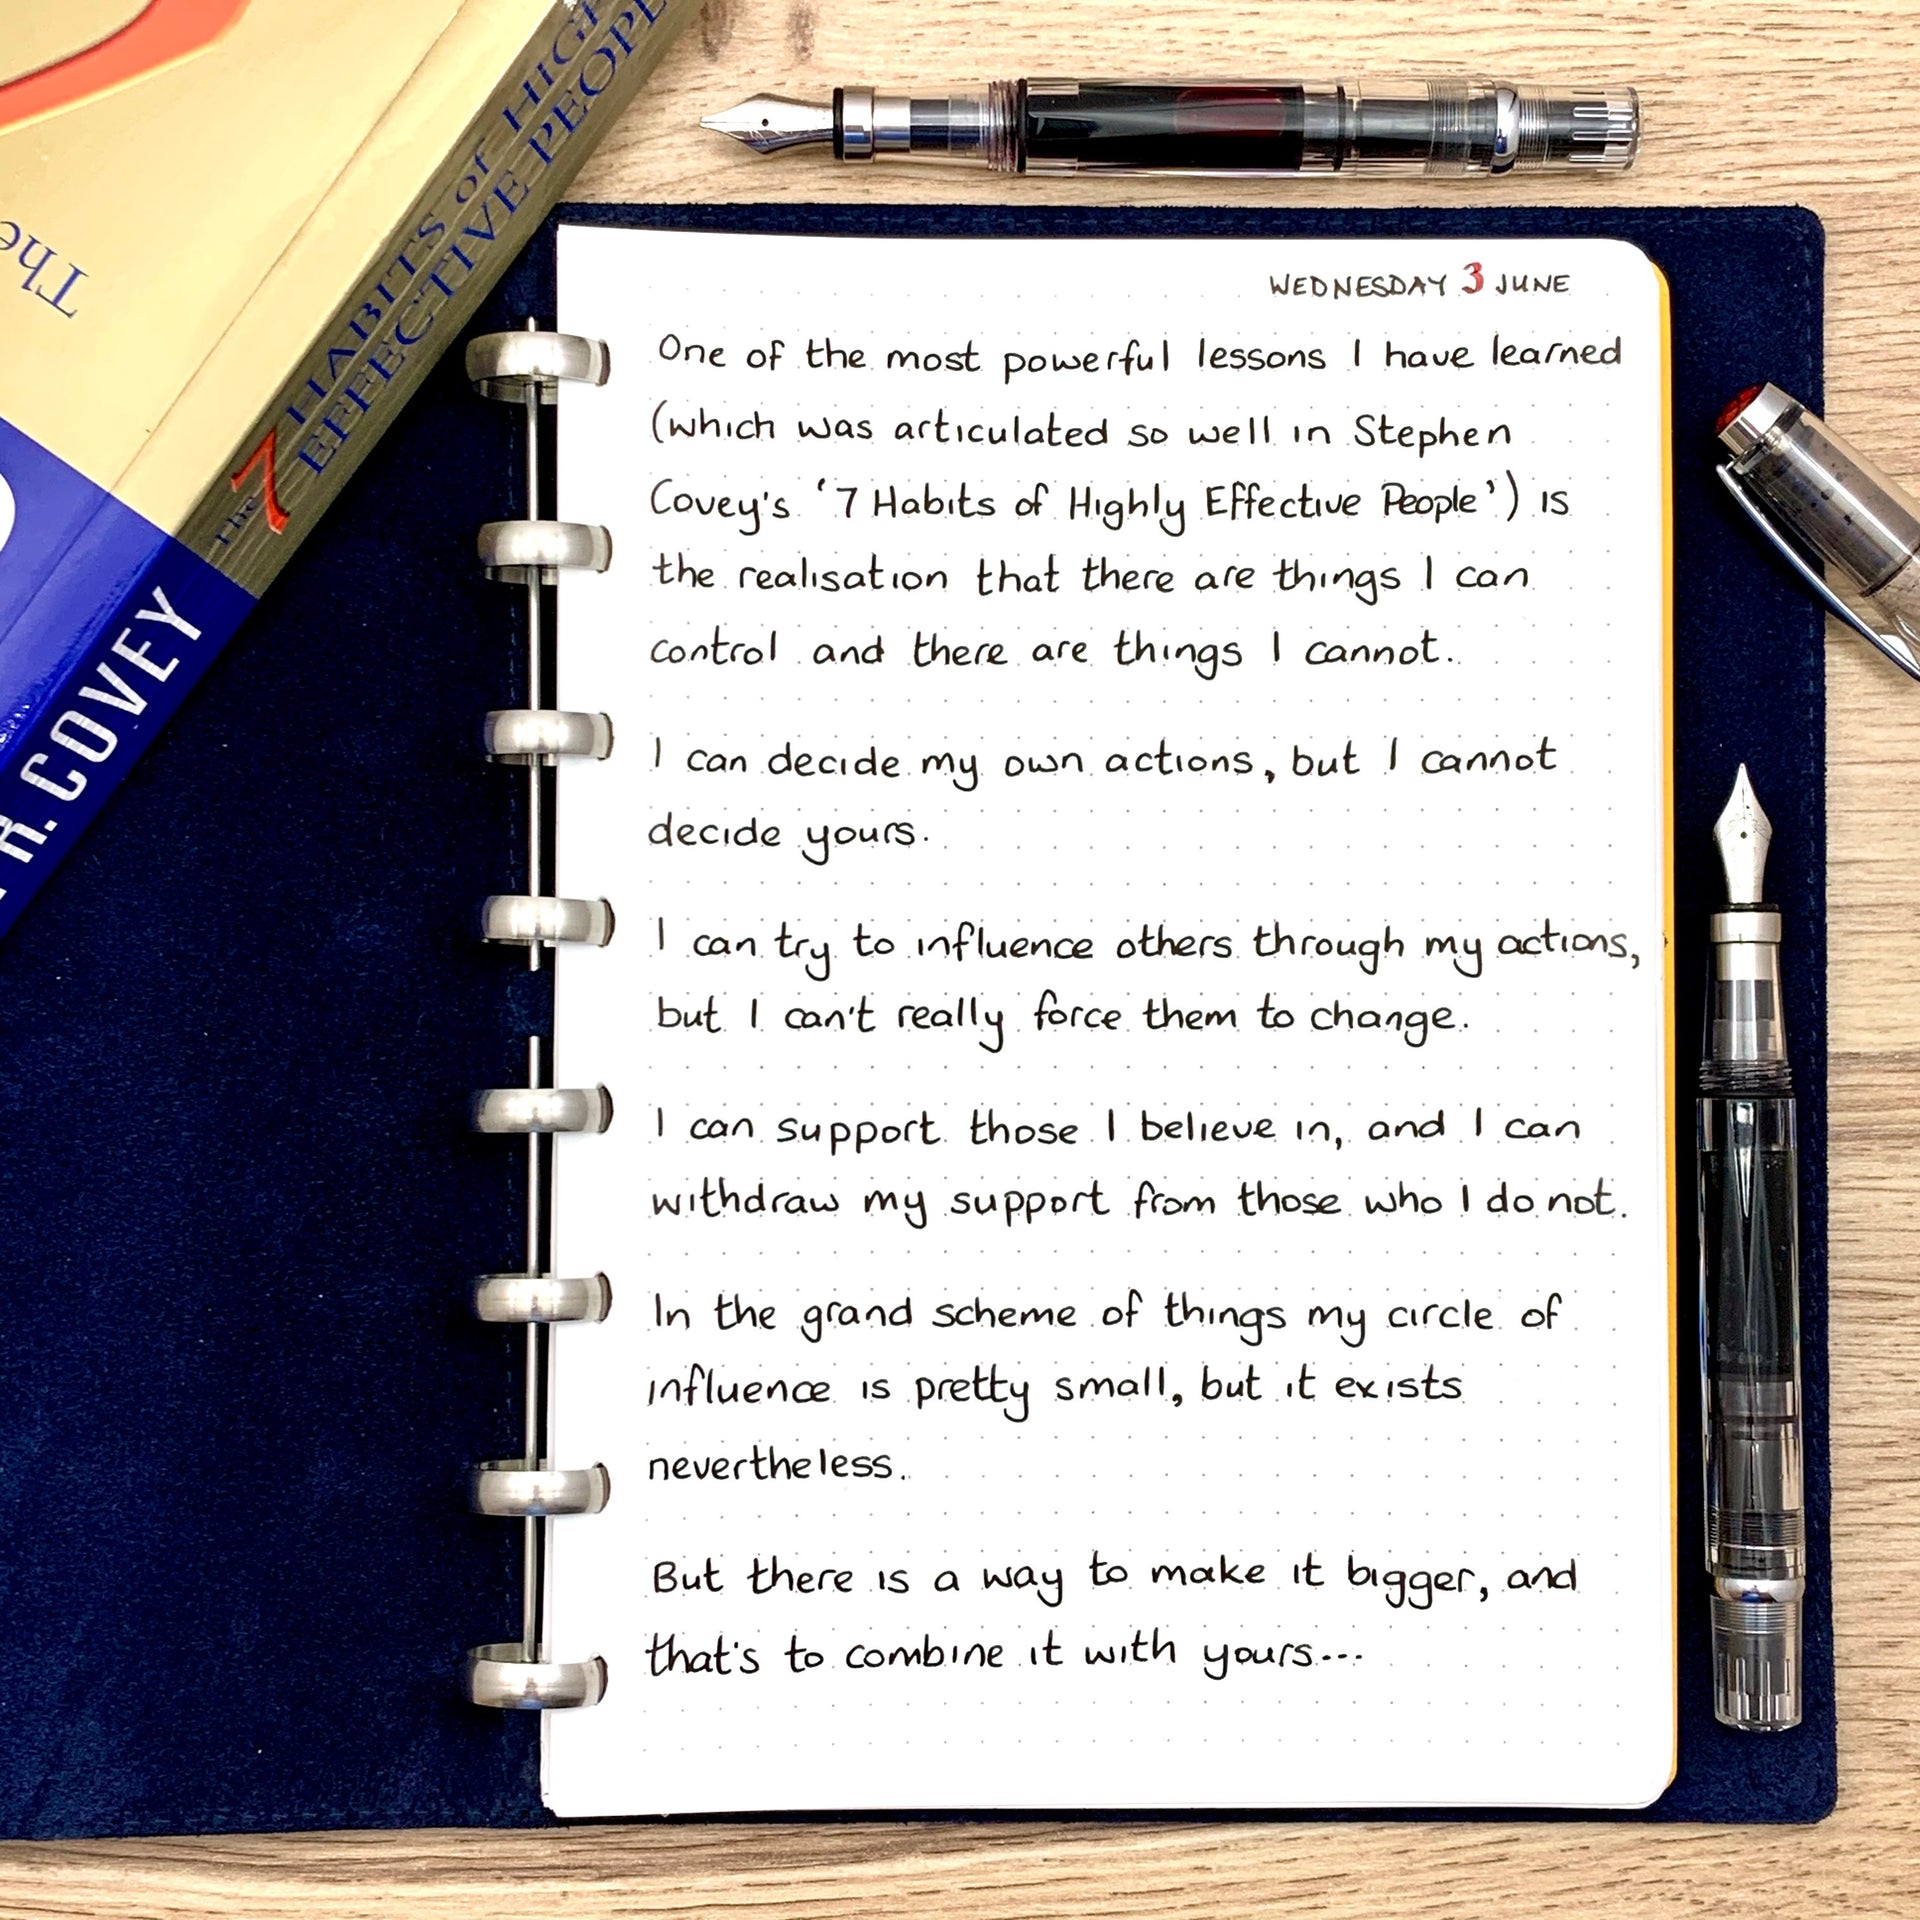 The
The 7 HABITS of HIGH
EFFECTIVE PEOPL
R. COVEY
WEDNESDAY 3 JUNE
One of the most powerful lessons I have learned
(which was articulated so well in Stephen
Covey's '7 Habits of Highly Effective People') is
the realisation that there are things I can
control and there are things I cannot.
I can decide my own actions, but I cannot
decide yours.
I can try to influence others through my actions,
but I can't really force them to change.
I can support those I believe in, and I can
withdraw my support from those who I do not.
In the grand scheme of things my circle of
influence is pretty small, but it exists
nevertheless.
But there is a way to make it bigger, and
that's to combine it with yours...